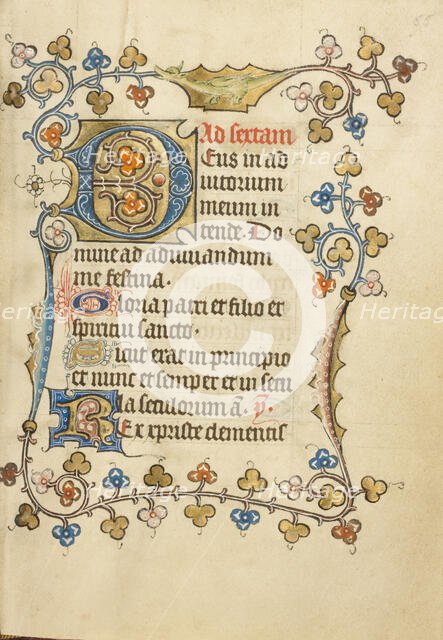 55
Ad sextam
Deus in ad
iutorium
meum in
tende. Do
mine ad adiuuandum
me festina.
Gloria patri et filio et
spiritui sancto.
Sicut erat in principio
et nunc et semper et in secu
la seculorum a. p.
Rex xpriste clementis
Heritage
Heritage
Heritage
Heritage
Heritage
Heritage